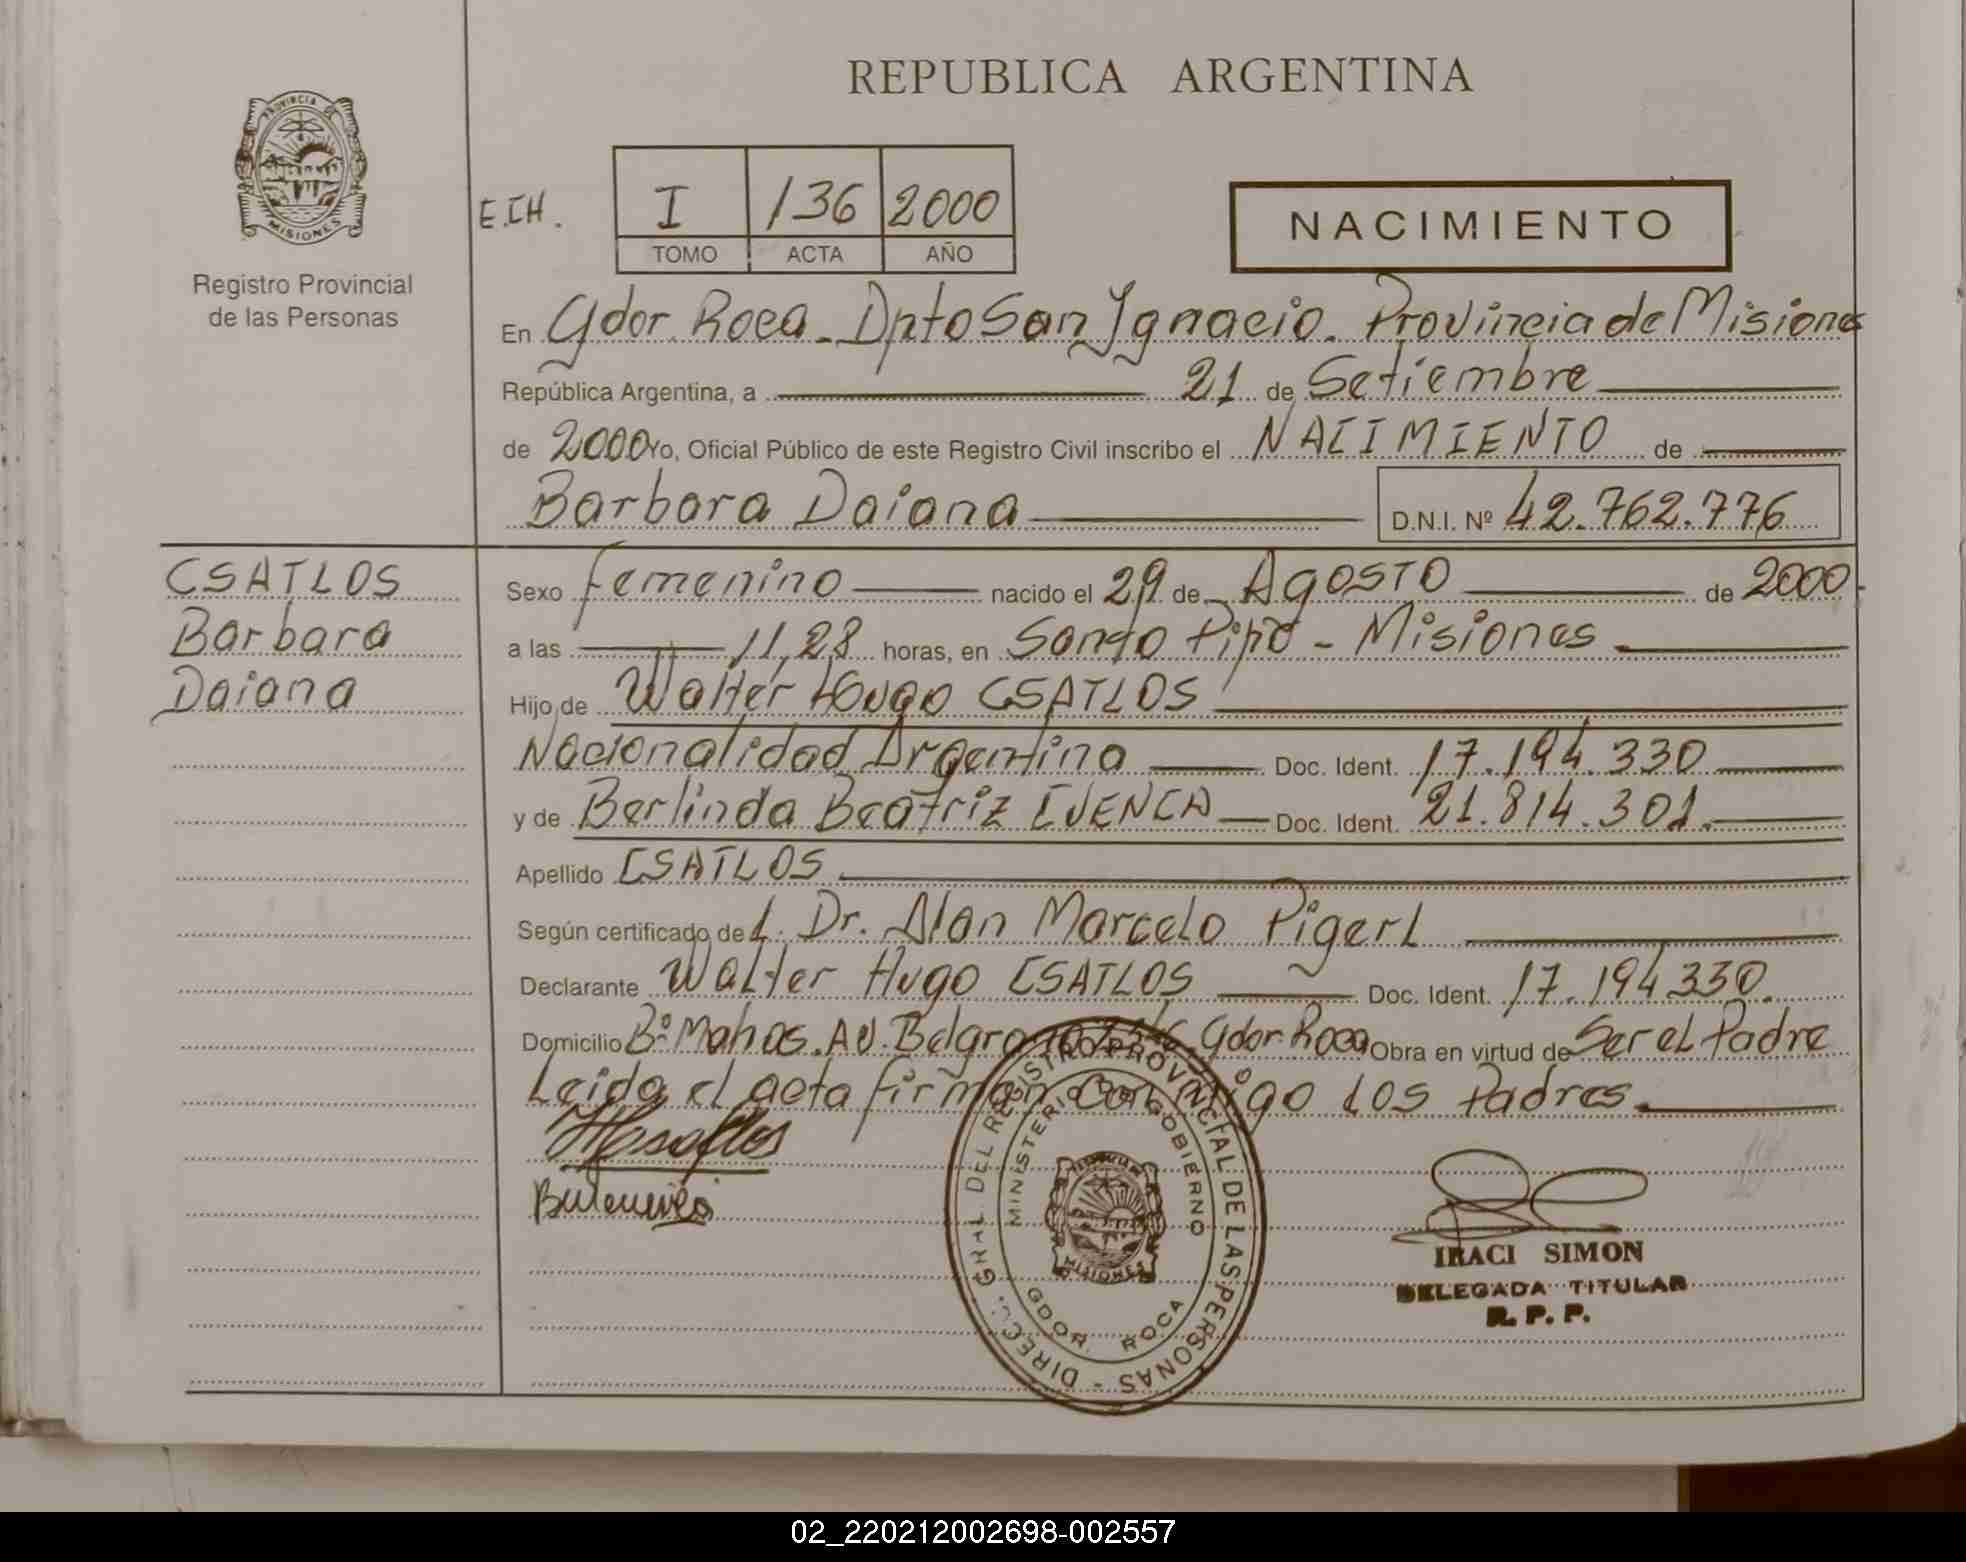 REPUBLICA ARGENTINA
PROVINCIA DE
MISIONES
Registro Provincial
de las Personas
E.CH.
I 136 2000
TOMO ACTA AÑO
NACIMIENTO
En Gdor. Roca - Dpto San Ignacio. Provincia de Misiones
República Argentina, a 21 de Setiembre
de 2000 Yo, Oficial Público de este Registro Civil inscribo el NACIMIENTO de
Barbara Daiana D.N.I. Nº 42.762.776
CSATLOS
Barbara
Daiana
Sexo femenino nacido el 29 de Agosto de 2000
a las 11,28 horas, en Santo Pipó - Misiones
Hijo de Walter Hugo CSATLOS
Nacionalidad Argentina Doc. Ident. 17.194.330
y de Berlinda Beatriz CUENCA Doc. Ident. 21.814.301.
Apellido CSATLOS
Según certificado del. Dr. Alan Marcelo Pigerl
Declarante Walter Hugo CSATLOS Doc. Ident. 17.194.330.
Domicilio Bº Mahos. AV. Belgrano Gdor. Roca Obra en virtud de Ser el Padre
Leida el acta firman Conmigo los Padres.
DIREC. GRAL. DEL REGISTRO PROVINCIAL DE LAS PERSONAS -
MINISTERIO DE GOBIERNO
MISIONES
GDOR. ROCA
IRACI SIMON
DELEGADA TITULAR
R. P. P.
02_220212002698-002557